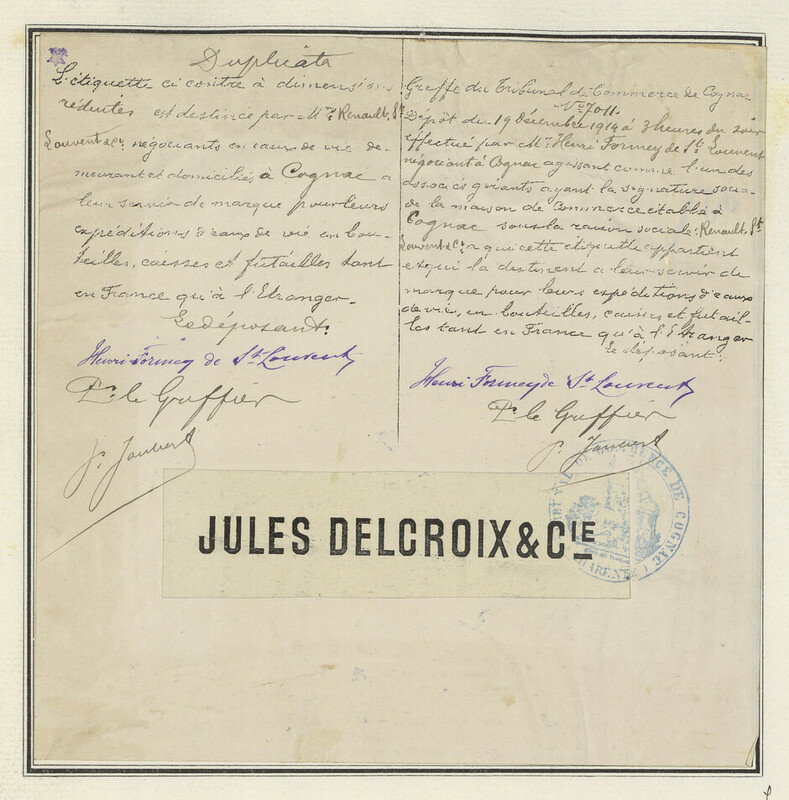 Duplicata
L'étiquette ci contre à dimensions
réduites est destinée par Mrs Renault, St
Louvent & Cie négociants en eaux de vie de-
meurant et domiciliés à Cognac a
leur servir de marque pour leurs
expéditions d'eaux de vie en bou-
teilles, caisses et futailles tant
en France qu'à l'Etranger.
Le déposant.
Henri Formey de St Louvent
Pr. le Greffier
J. Jaubert
Greffe du Tribunal de Commerce de Cognac
No 7011.
Dépôt du 19 décembre 1914 à 3 heures du soir
effectué par Mr Henri Formey de St Louvent
négociant à Cognac agissant comme l'un des
associés gérants ayant la signature socia-
de la maison de Commerce établie à
Cognac sous la raison sociale: Renault, St
Louvent & Cie a qui cette étiquette appartient
et qui la destinent a leur servir de
marque pour leurs expéditions d'eaux
de vie, en bouteilles, caisses et futail-
les tant en France qu'à l'Etranger
Le déposant.
Henri Formey de St Louvent
Pr. le Greffier
J. Jaubert
JULES DELCROIX & CIE
TRIBUNAL DE COMMERCE DE COGNAC